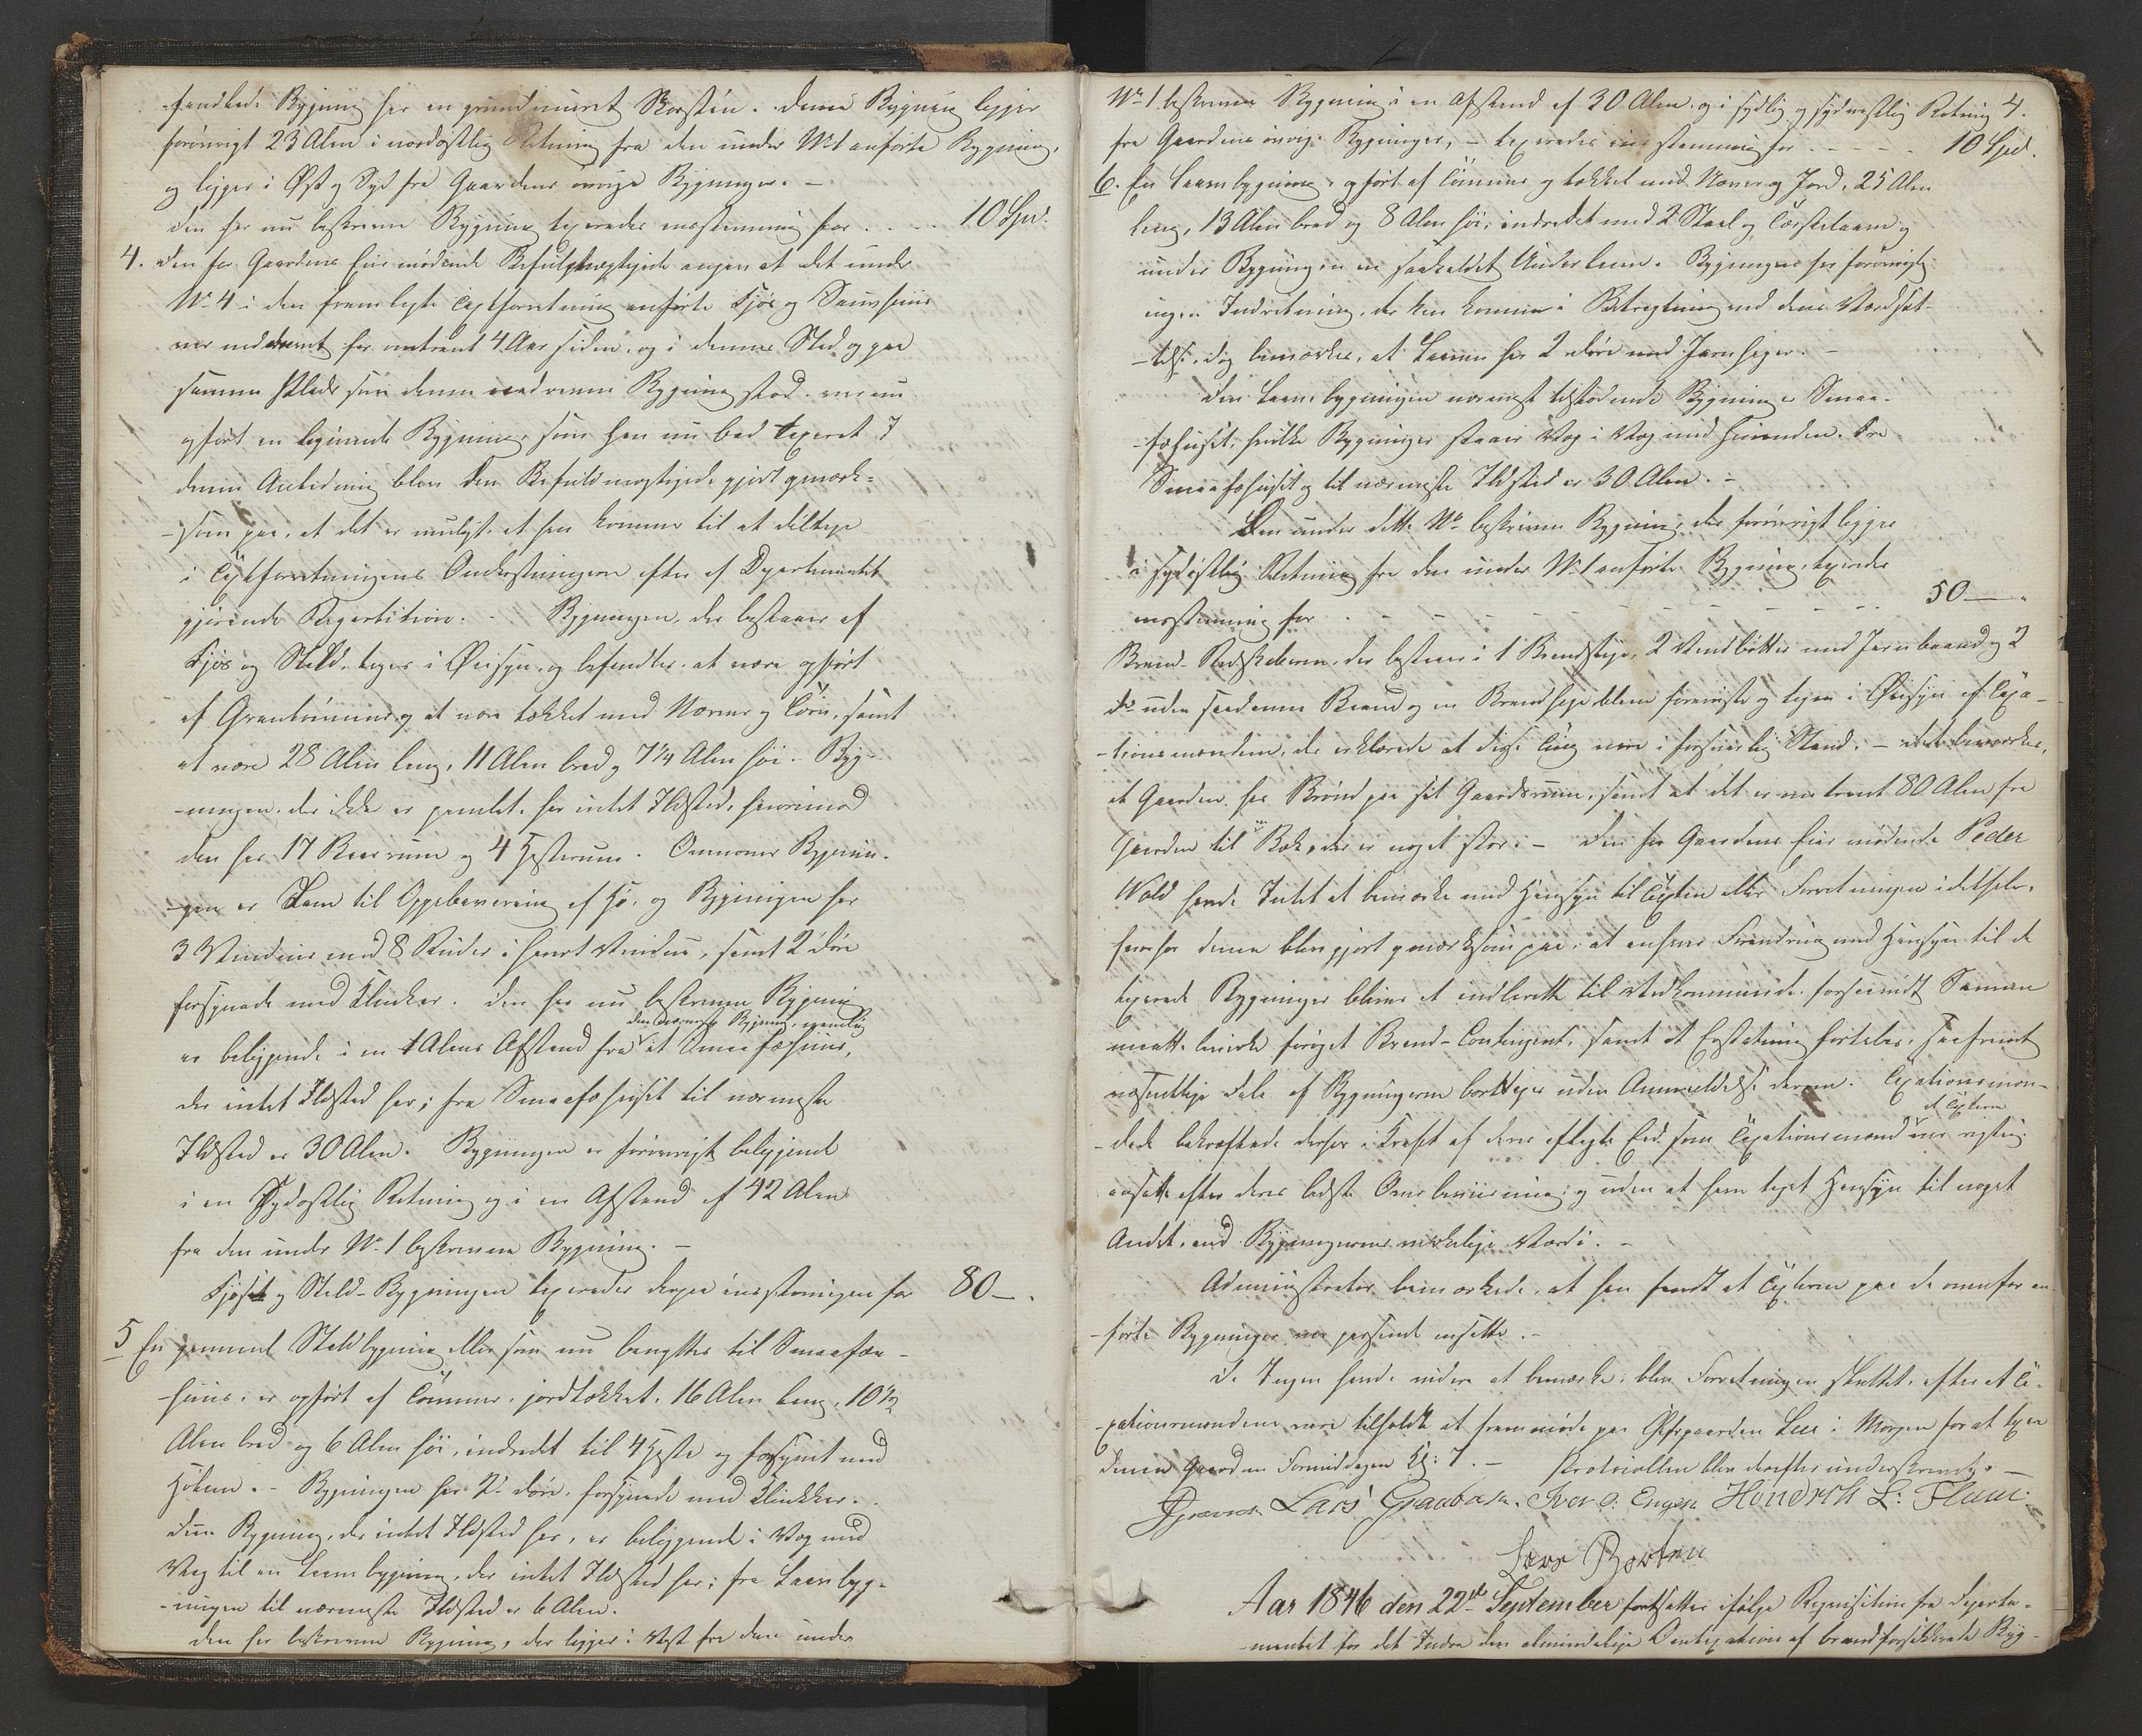 -handlede Bygning har en grundmuret Skorsteen. Denne Bygning ligger
forövrigt 23 Alen i nordöstlig Retning fra den under No 1 anförte Bygning,
og ligger i Öst og Syd fra Gaardens övrige Bygninger. –
Den her nu beskrevne Bygning taxeredes eensstemmig for . . . . 10 Spd.
4. Den for Gaardens Eier mödende Befuldmægtigede angav at det under
No 4 i den fremlagte Taxtforretning anförte Fjös og Sauehuus
var nedrevet for omtrent 4 Aar siden, og i dennes Sted og paa
samme Plads som denne nedrevne Bygning stod, var nu
opfört en lignende Bygning, som han nu bad taxeret. I
denne Anledning blev den Befuldmægtigede gjort opmærk-
-som paa, at det er muligt, at han kommer til at deltage
i Taxtforretningens Omkostninger efter af Departementet
gjörende Repartition. Bygningen, der bestaaer af
Fjös og Stald, toges i Öiesyn, og befandtes at være opfört
af Grantömmer og at være tækket med Næver og Törv, samt
at være 28 Alen lang, 11 Alen bred og 7 1/4 Alen höi. Byg-
-ningen, der ikke er panelet, har intet Ildsted, hvorimod
den har 17 Baasrum og 4 Hesterum. Ovenover Bygnin-
-gen er Lem til Opbevaring af Hö, og Bygningen har
3 Vinduer med 8 Ruder i hvert Vindue, samt 2 Döre
forsynede med Klinker. Den her nu beskrevne Bygning
den nærmeste Bygning, nemlig
er beliggende i en 1 Alens Afstand fra et Smaafæhuus,
der intet Ildsted har; fra Smaafæhuset til nærmeste
Ildsted er 30 Alen. Bygningen er forövrigt beliggende
i en Sydostlig Retning og i en Afstand af 42 Alen
fra den under No 1 beskrevne Bygning. –
Fjöset og Stald-Bygningen taxeredes derpaa eensstemmigen for 80 – .
5 En gammel Staldbygning eller som nu benyttes til Smaafæe-
-huus, er opfört af Tömmer, jordtækket, 16 Alen lang, 10 1/2
Alen bred og 6 Alen höi, indredet til 4 Heste og forsynet med
Hölem. – Bygningen har 2de Döre, forsynede med Klinkker.
Denne Bygning, der intet Ildsted har, er beliggende i Væg med
Væg til en Laavebygning, der intet Ildsted har; fra Laavebyg-
-ningen til nærmeste Ildsted er 6 Alen.
Den her beskrevne Bygning, der ligger i Vest fra den under
No 1 beskrevne Bygning i en Afstand af 30 Alen, og i sydlig og sydvestlig Retning 4.
fra Gaardens övrige Bygninger, – taxeredes eensstemmig for . . . . . 10 Spd.
6. En Laavebygning, opfört af Tömmer og tækket med Næver og Jord, 25 Alen
lang, 13 Alen bred og 8 Alen höi, indredet med 2 Staal og Tærskelaave og
under Bygningen en saakaldet Underlaave. Bygningen har forövrigt
ingen Indretning, der kan komme i Betragtning ved dens Værdsæt-
-telse, dog bemærkes, at Laaven har 2 Döre med Jernhager. –
Den Laavebygningen nærmest tilstödende Bygning er Smaa-
-fæhuset; hvilke Bygninger staaer Væg i Væg med hinanden. Fra
Smaafæhuset og til nærmeste Ildsted er 30 Alen. –
Den under dette No beskrevne Bygning, der forövrigt ligger
i sydöstlig Retning fra den under No 1 anförte Bygning, taxeredes
eensstemmig for . – – – – – – – – . . 50 – "
Brand-Redskaberne, der bestaaer i 1 Brandstige, 2 Vandbötter med Jernbaand og 2
do uden saadanne Baand og en Brandhage bleve foreviste og tagen i Öiesyn af Taxa-
-tionsmændene, der erklærede at disse Ting vare i forsvarlig Stand. – Det bemærkes,
at Gaarden har Brönd paa sit Gaardsrum, samt at det er omtrent 80 Alen fra
Gaarden til en Bæk, der er noget stor. – Den for Gaardens Eier mödende Peder
Wold havde Intet at bemærke med Hensyn til Taxten eller Forretningen idethele,
hvorfor denne blev gjort opmærksom paa, at enhver Forandring med Hensyn til de
taxerede Bygninger bliver at indberette til Vedkommende, forsaavidt Samme
maatte bevirke foröget Brand-Contingent, samt at Erstatning fortabes, saafremt
væsentlige Dele af Bygningerne borttages uden Anmeldelse derom. Taxationsmæn-
at Taxterne
-dene bekræftede derhos i Kraft af deres aflagte Eed som Taxationsmænd var rigtig
ansatte efter deres bedste Overbeviisning, og uden at have taget Hensyn til noget
Andet, end Bygningernes virkelige Værdi. –
Administrator bemærkede, at han fandt at Taxterne paa de ovenfor an-
-förte Bygninger var passende ansatte. –
Da Ingen havde videre at bemærke, blev Forretningen sluttet, efter at Ta-
-xationsmændene vare tilholdte at fremmöde paa Gaarden Lee i Morgen for at taxere
denne Gaard om Formiddagen Kl: 7. – Protocollen blev derefter underskrevet. –
Lars Graabak. Iver O: Engen Hendrich L: Flaae
Lars Borten
Aar 1846 den 22de September fortsattes ifölge Requisition fra Departe-
-mentet for det Indre den almindelige Omtaxation af brandforsikkrede Byg-